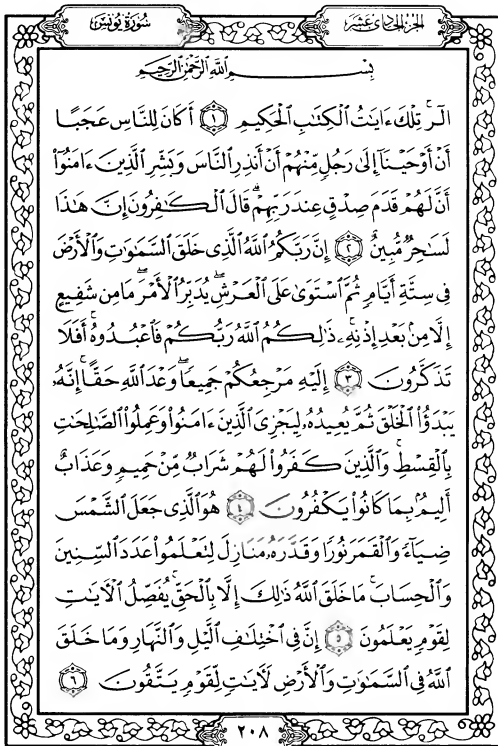 سُورَةُ يُونُسَ
الجُزءُ الحَادِي عَشَرَ
بِسْمِ اللَّهِ الرَّحْمَٰنِ الرَّحِيمِ
الٓرۚ تِلۡكَ ءَايَٰتُ ٱلۡكِتَٰبِ ٱلۡحَكِيمِ ١ أَكَانَ لِلنَّاسِ عَجَبًا
أَنۡ أَوۡحَيۡنَآ إِلَىٰ رَجُلٖ مِّنۡهُمۡ أَنۡ أَنذِرِ ٱلنَّاسَ وَبَشِّرِ ٱلَّذِينَ ءَامَنُوٓاْ
أَنَّ لَهُمۡ قَدَمَ صِدۡقٍ عِندَ رَبِّهِمۡۗ قَالَ ٱلۡكَٰفِرُونَ إِنَّ هَٰذَا
لَسَٰحِرٞ مُّبِينٌ ٢ إِنَّ رَبَّكُمُ ٱللَّهُ ٱلَّذِي خَلَقَ ٱلسَّمَٰوَٰتِ وَٱلۡأَرۡضَ
فِي سِتَّةِ أَيَّامٖ ثُمَّ ٱسۡتَوَىٰ عَلَى ٱلۡعَرۡشِۖ يُدَبِّرُ ٱلۡأَمۡرَۖ مَا مِن شَفِيعٍ
إِلَّا مِنۢ بَعۡدِ إِذۡنِهِۦۚ ذَٰلِكُمُ ٱللَّهُ رَبُّكُمۡ فَٱعۡبُدُوهُۚ أَفَلَا
تَذَكَّرُونَ ٣ إِلَيۡهِ مَرۡجِعُكُمۡ جَمِيعٗاۖ وَعۡدَ ٱللَّهِ حَقًّاۚ إِنَّهُۥ
يَبۡدَؤُاْ ٱلۡخَلۡقَ ثُمَّ يُعِيدُهُۥ لِيَجۡزِيَ ٱلَّذِينَ ءَامَنُواْ وَعَمِلُواْ ٱلصَّٰلِحَٰتِ
بِٱلۡقِسۡطِۚ وَٱلَّذِينَ كَفَرُواْ لَهُمۡ شَرَابٞ مِّنۡ حَمِيمٖ وَعَذَابٌ
أَلِيمُۢ بِمَا كَانُواْ يَكۡفُرُونَ ٤ هُوَ ٱلَّذِي جَعَلَ ٱلشَّمۡسَ
ضِيَآءٗ وَٱلۡقَمَرَ نُورٗا وَقَدَّرَهُۥ مَنَازِلَ لِتَعۡلَمُواْ عَدَدَ ٱلسِّنِينَ
وَٱلۡحِسَابَۚ مَا خَلَقَ ٱللَّهُ ذَٰلِكَ إِلَّا بِٱلۡحَقِّۚ يُفَصِّلُ ٱلۡأٓيَٰتِ
لِقَوۡمٖ يَعۡلَمُونَ ٥ إِنَّ فِي ٱخۡتِلَٰفِ ٱلَّيۡلِ وَٱلنَّهَارِ وَمَا خَلَقَ
ٱللَّهُ فِي ٱلسَّمَٰوَٰتِ وَٱلۡأَرۡضِ لَأٓيَٰتٖ لِّقَوۡمٖ يَتَّقُونَ ٦
٢٠٨